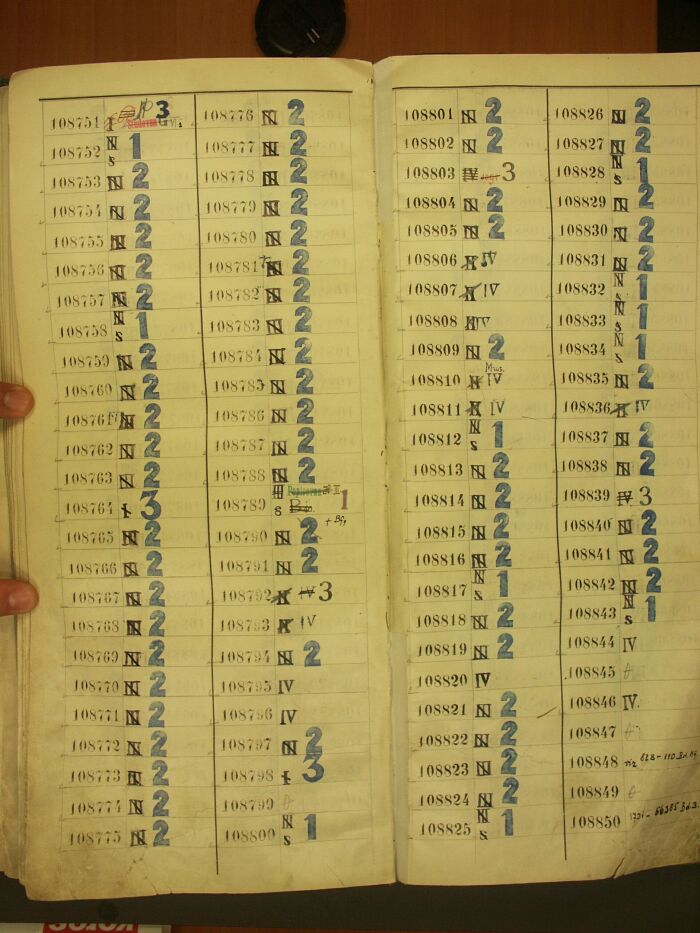 108751 3
108752 N s 1
108753 N 2
108754 N 2
108755 N 2
108756 N 2
108757 N 2
108758 N s 1
108759 N 2
108760 N 2
108761 N 2
108762 N 2
108763 N 2
108764 3
108765 N 2
108766 N 2
108767 N 2
108768 N 2
108769 N 2
108770 N 2
108771 N 2
108772 N 2
108773 N 2
108774 N 2
108775 N 2
108776 N 2
108777 N 2
108778 N 2
108779 N 2
108780 N 2
108781 N 2
108782 N 2
108783 N 2
108784 N 2
108785 N 2
108786 N 2
108787 N 2
108788 N 2
108789 s 1
108790 N 2
108791 N 2
108792 IV 3
108793 IV
108794 N 2
108795 IV
108796 IV
108797 N 2
108798 3
108799
108800 N s 1
108801 N 2
108802 N 2
108803 IV 3
108804 N 2
108805 N 2
108806 IV
108807 IV
108808 IV
108809 N 2
Mus.
108810 IV
108811 IV
108812 N s 1
108813 N 2
108814 N 2
108815 N 2
108816 N 2
108817 N s 1
108818 N 2
108819 N 2
108820 IV
108821 N 2
108822 N 2
108823 N 2
108824 N 2
108825 N s 1
108826 N 2
108827 N 2
108828 N s 1
108829 N 2
108830 N 2
108831 N 2
108832 N s 1
108833 N s 1
108834 N s 1
108835 N 2
108836 IV
108837 N 2
108838 N 2
108839 IV 3
108840 N 2
108841 N 2
108842 N 2
108843 N s 1
108844 IV
108845
108846 IV.
108847
108848
108849
108850